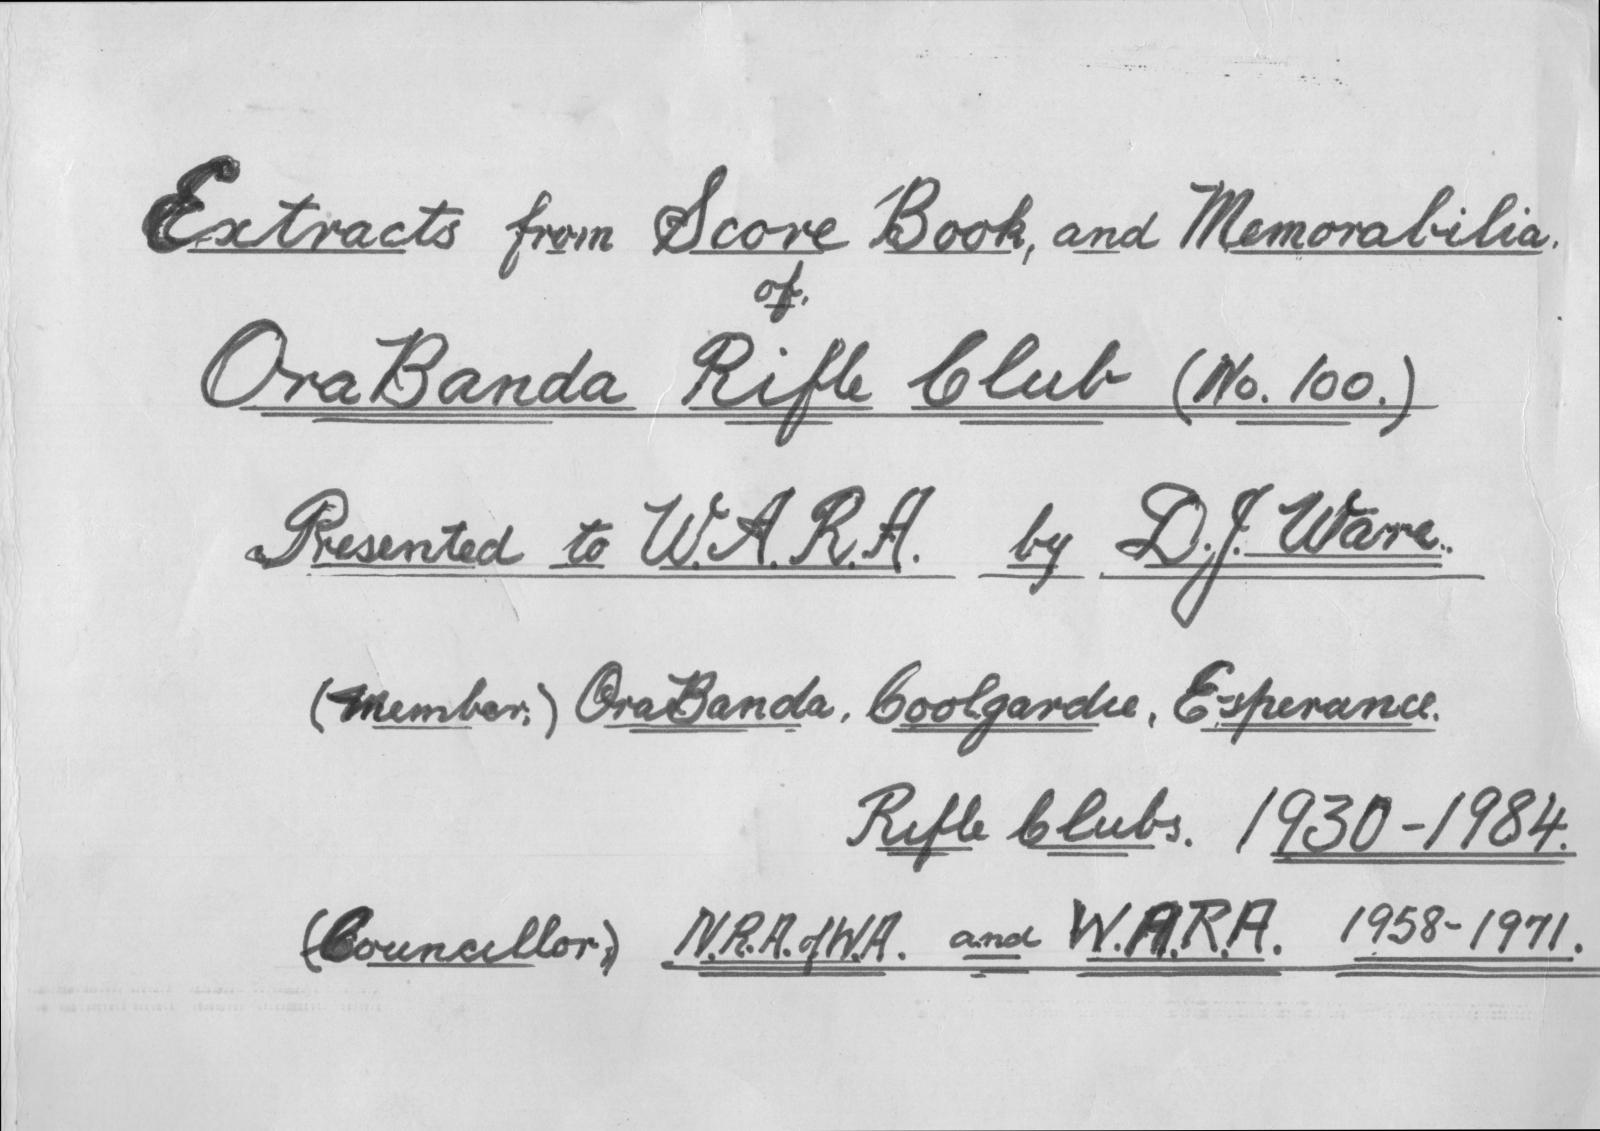 Extracts from Score Book, and Memorabilia.
of.
OraBanda Rifle Club (No. 100.)
Presented to W.A.R.A. by D.J. Ware.
(Member.) OraBanda, Coolgardie, Esperance.
Rifle Clubs. 1930-1984.
(Councillor.) N.R.A. of W.A. and W.A.R.A. 1958-1971.